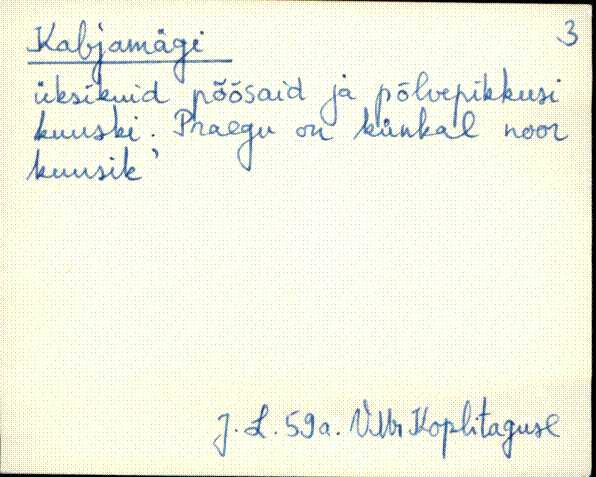 Kabjamägi 3
üksikuid põõsaid ja põlvepikkusi
kuuski. Praegu on künkal noor
kuusik’
J. L. 59a. Koplitaguse